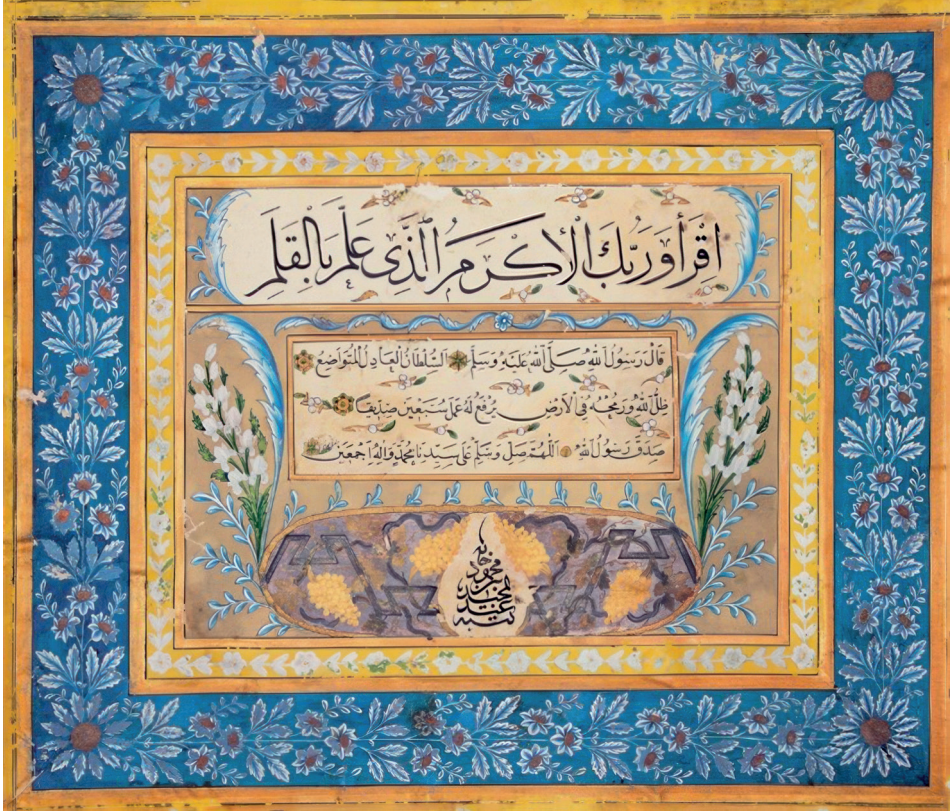 اقْرَأْ وَرَبُّكَ الْأَكْرَمُ الَّذِي عَلَّمَ بِالْقَلَمِ
قَالَ رَسُولُ اللهِ صَلَّى اللهُ عَلَيْهِ وَسَلَّمَ السُّلْطَانُ الْعَادِلُ الْمُتَوَاضِعُ
ظِلُّ اللهِ وَرُمْحُهُ فِي الْأَرْضِ يُرْفَعُ لَهُ عَمَلُ سَبْعِينَ صِدِّيقًا
صَدَقَ رَسُولُ اللهِ اللَّهُمَّ صَلِّ وَسَلِّمْ عَلَى سَيِّدِنَا مُحَمَّدٍ وَآلِهِ أَجْمَعِينَ
كتبه عبد المجيد بن محمود خان